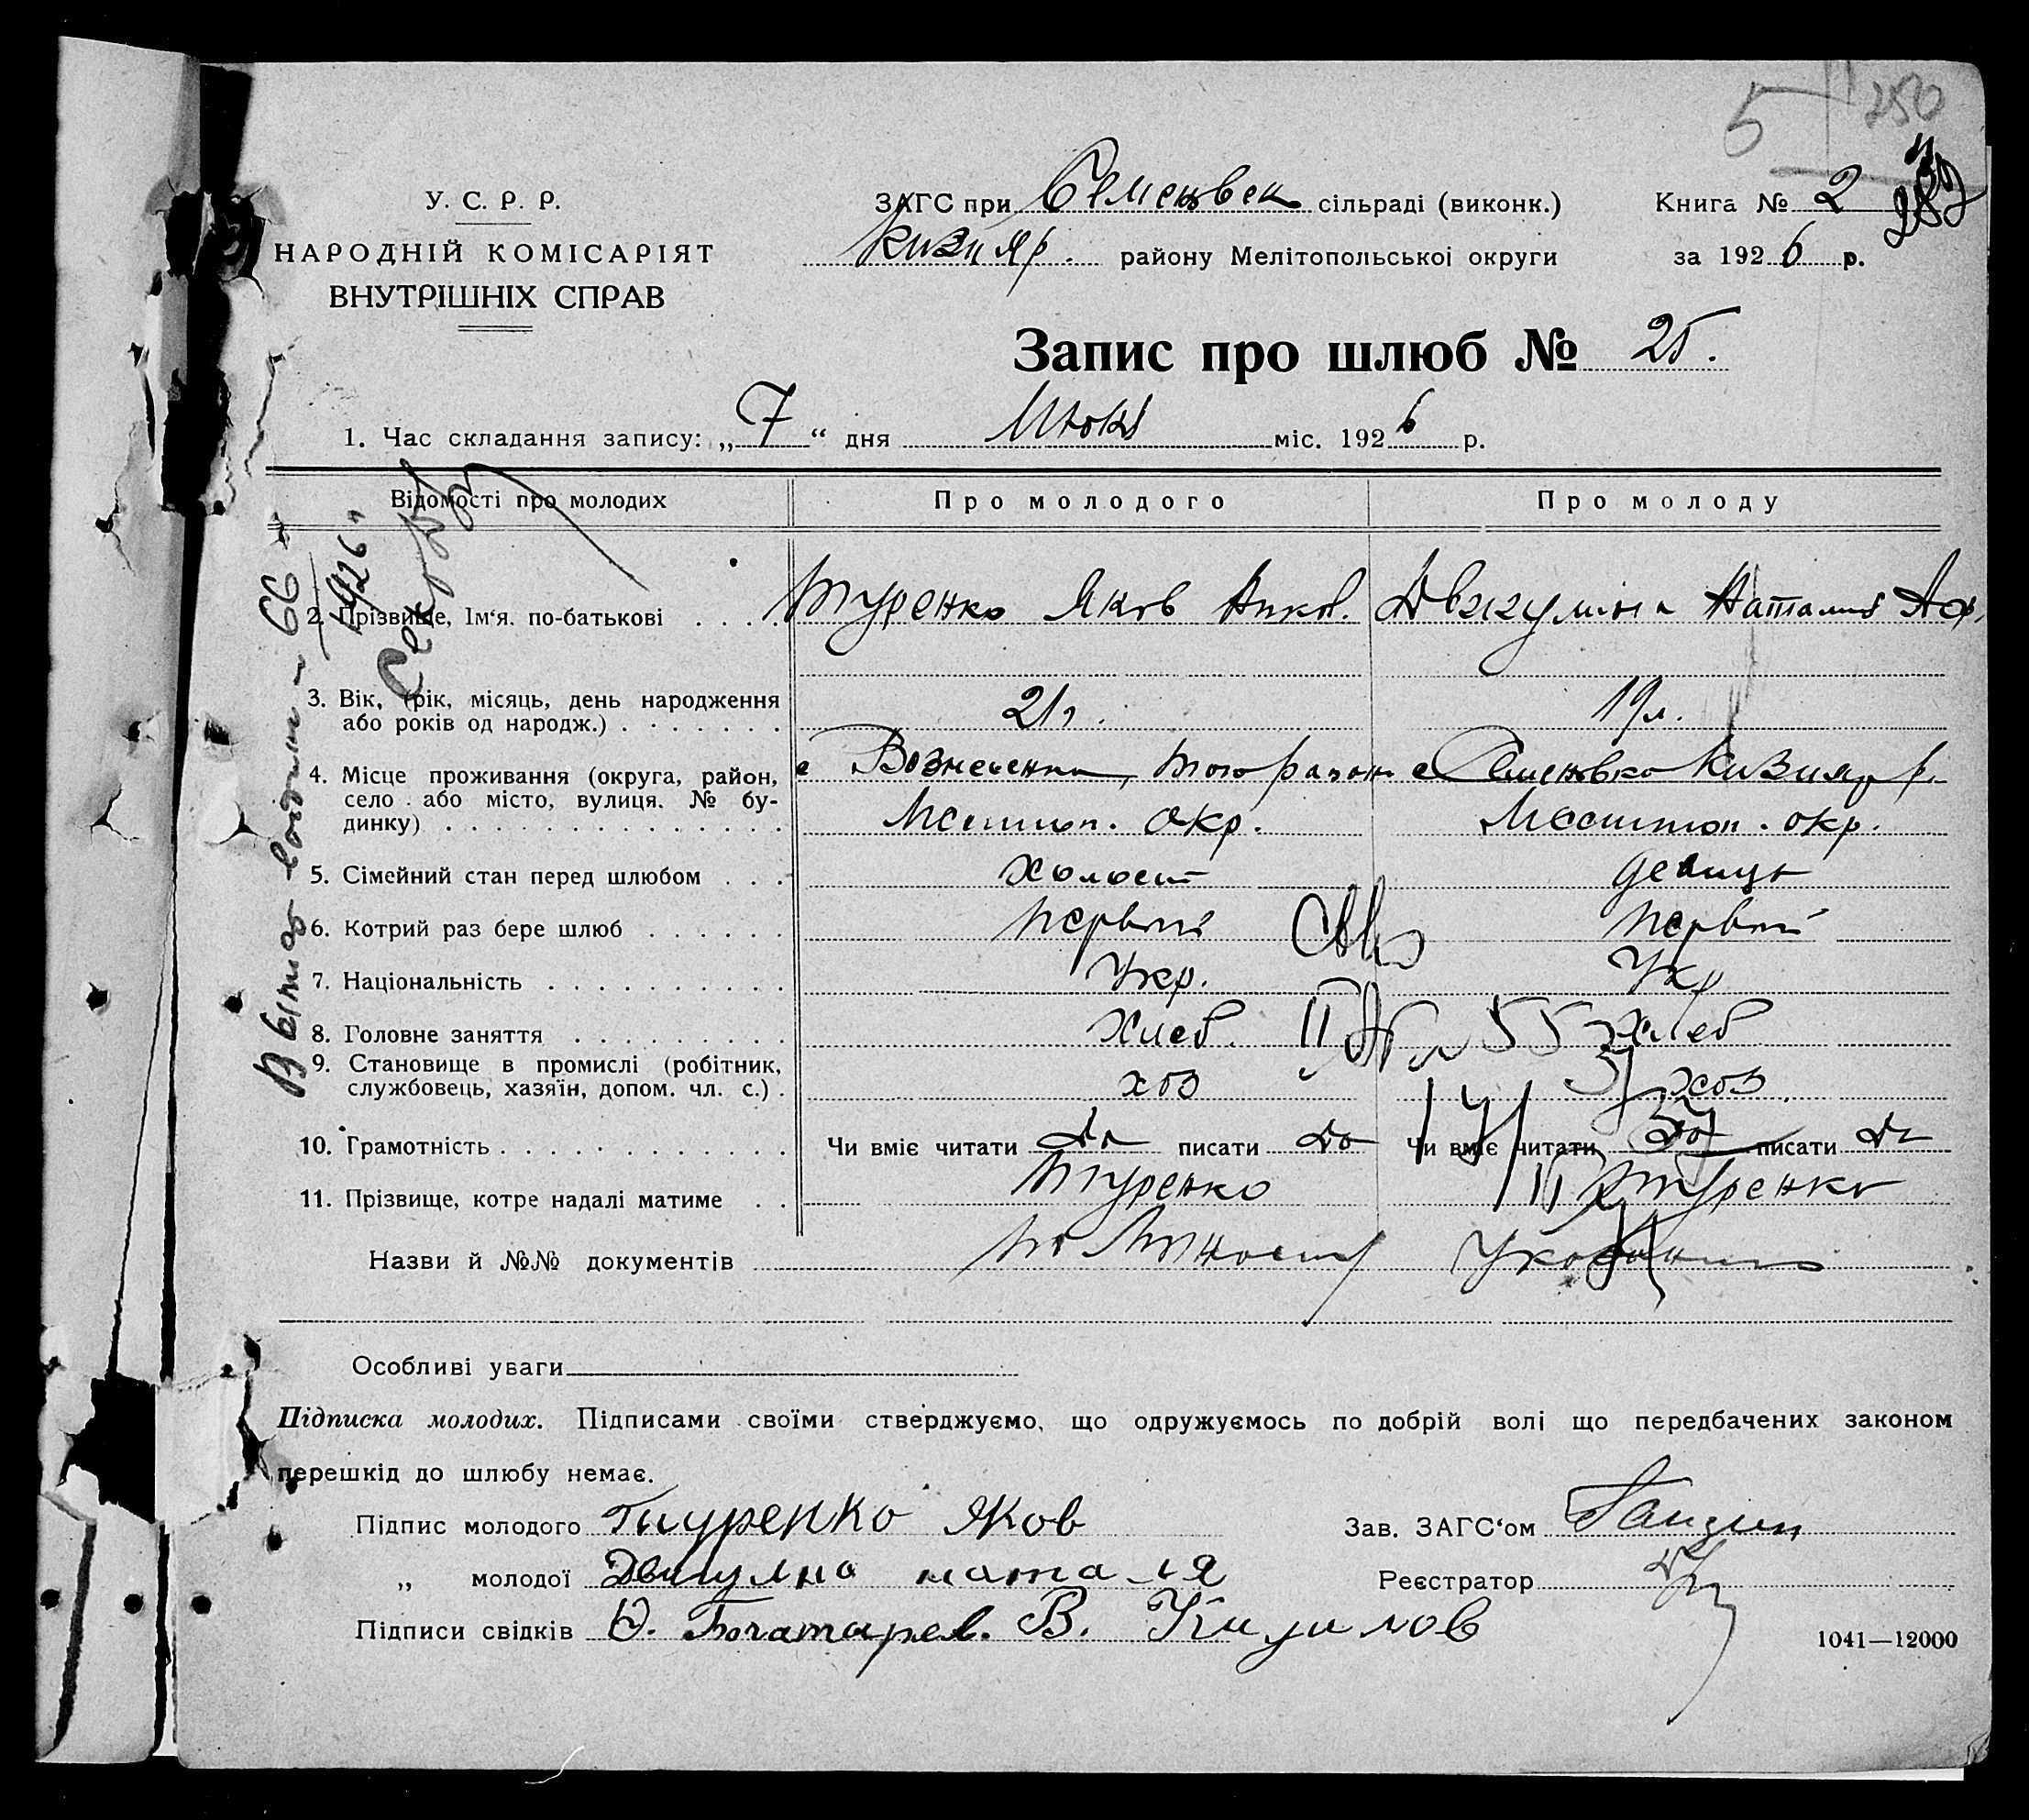 5 250
У. С. Р. Р.
НАРОДНІЙ КОМІСАРІЯТ
ВНУТРІШНІХ СПРАВ
ЗАГС при Семеновск сільраді (виконк.)
Кизияр. району Мелітопольської округи
Книга № 2
за 1926 р.
Запис про шлюб № 25.
1. Час складання запису: „7“ дня міс. 1926 р.
Відомості про молодих Про молодого Про молоду
2. Прізвище, Ім‘я. по-батькові Туренко Яков Наталия
3. Вік, (рік, місяць, день народження
або років од народж.) 21г. 19л.
4. Місце проживання (округа, район, с Вознесенка, того района с Семеновка Кизияр р.
село або місто, вулиця. № бу-
динку) Мелитоп. окр. Мелитоп. окр.
5. Сімейний стан перед шлюбом холост девица
6. Котрий раз бере шлюб первый первый
7. Національність Укр. Укр
8. Головне заняття Хлеб. Хлеб
9. Становище в промислі (робітник,
службовець, хазяїн, допом. чл. с.) хоз хоз.
10. Грамотність Чи вміє читати да писати да Чи вміє читати да писати да
11. Прізвище, котре надалі матиме Туренко Туренко
Назви й №№ документів по
Особливі уваги
Підписка молодих. Підписами своїми стверджуємо, що одружуємось по добрій волі що передбачених законом
перешкід до шлюбу немає.
Підпис молодого Тнуренко Яков Зав. ЗАГС‘ом
„ молодої наталя Реєстратор
Підписи свідків В.
1041—12000